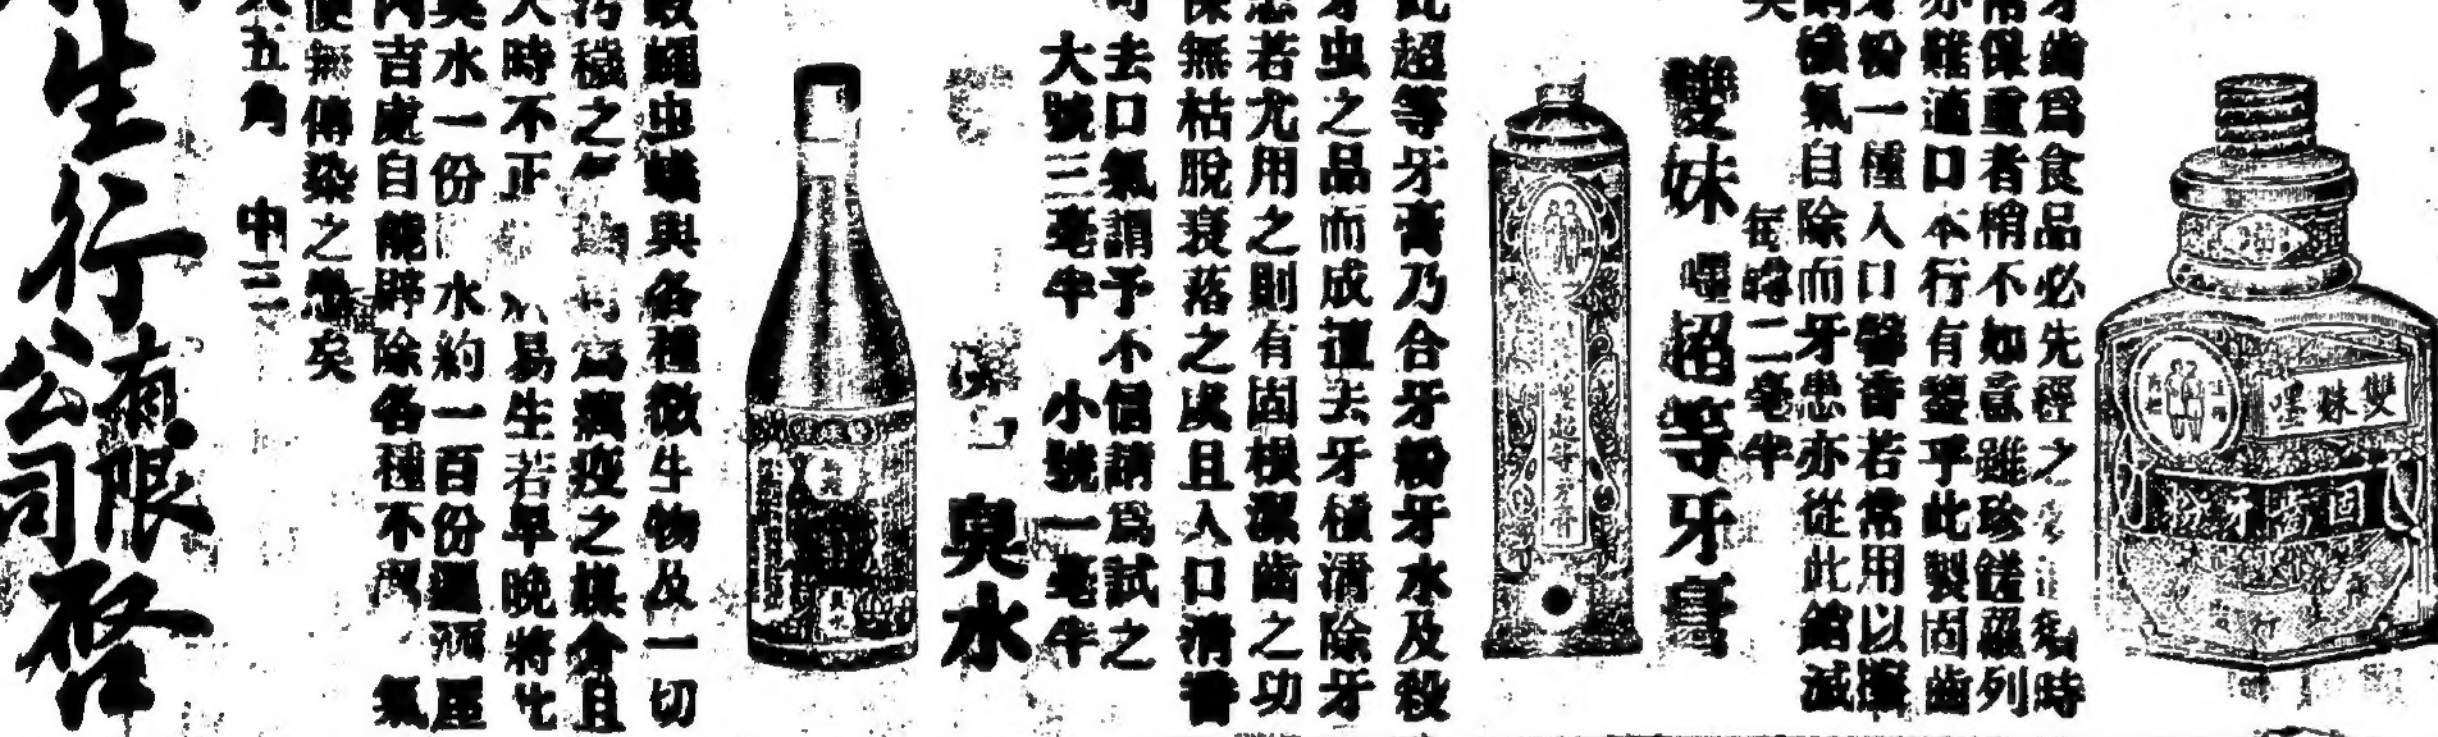 雙妹嚜
固齒牙粉
牙齒爲食品必先經之
時
常保重者稍不如意雖珍饈羅列
亦難適口本行有鑒乎此製固齒
牙粉一種入口馨香若常用以擦
穢氣自除而牙患亦從此銷滅
矣
每樽二毫半
雙妹嚜超等牙膏
嚜超等牙膏
此超等牙膏乃合牙粉牙水及殺
牙虫之品而成擅去牙穢清除牙
患若尤用之則有固根潔齒之功
保無枯脫衰落之虞且入口清香
可去口氣謂予不信請爲試之
大號三毫半 小號一毫半
臭水
臭水
殺蠅虫蟻與各種微生物及一切
污穢之
爲瘟疫之媒介且
天時不正
易生若早晚將此
臭水一份
水約一百份
洒屋
內吉處自能辟除各種不
氣
便無傳染之患矣
大五角 中三
生行有限公司啓